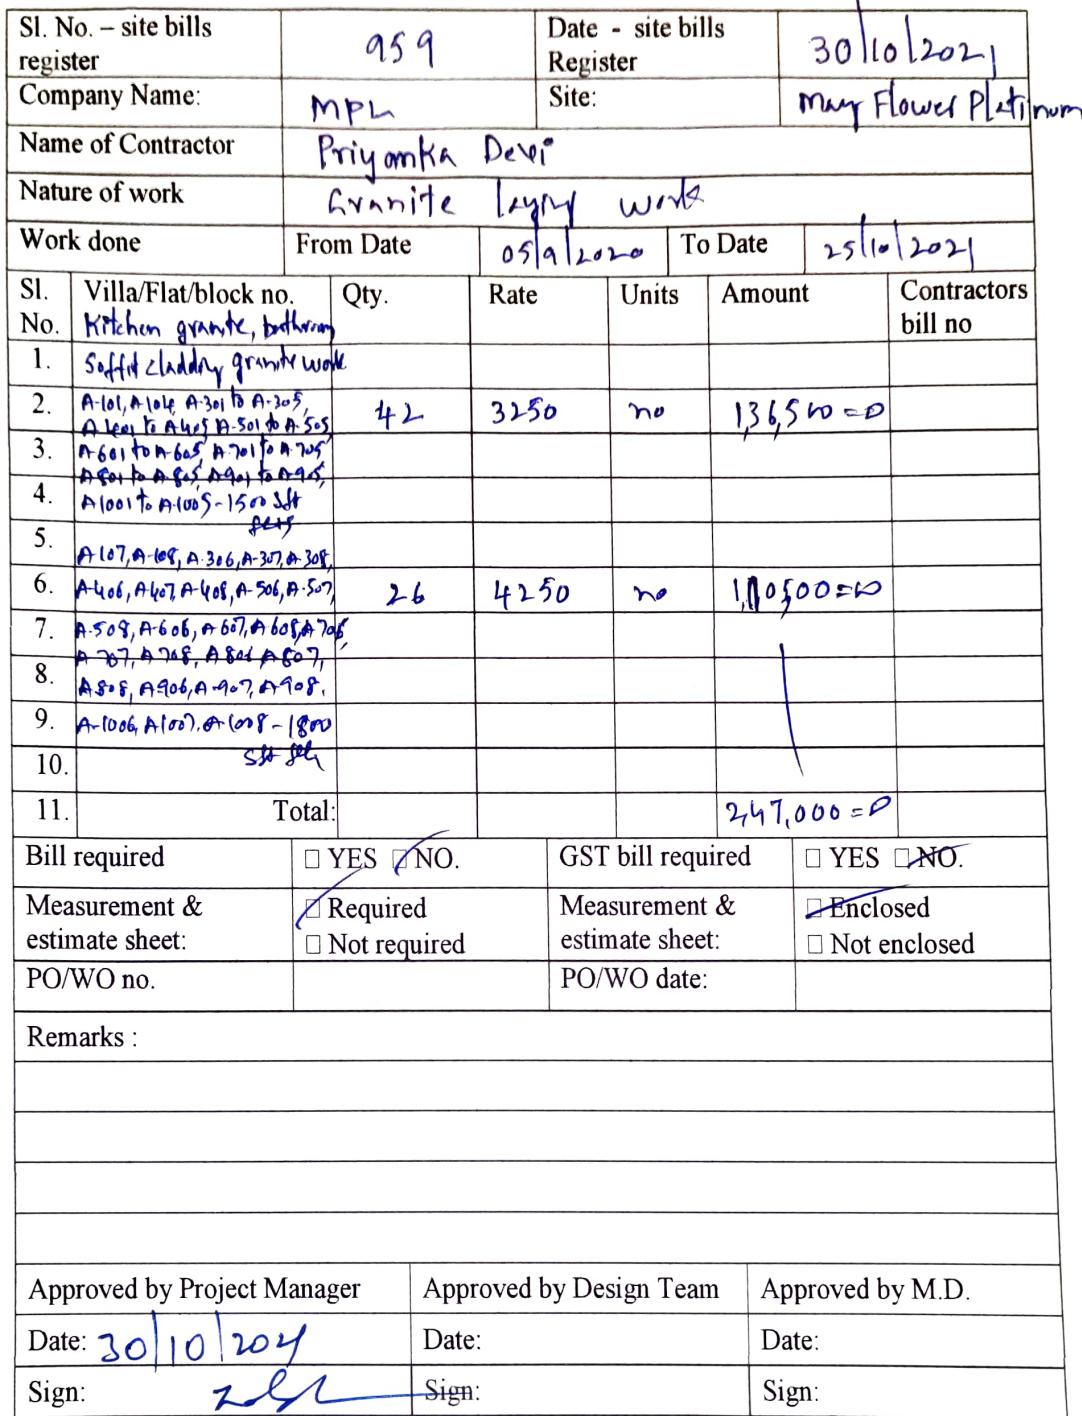 Sl. No. – site bills register 959 Date - site bills Register 30/10/2021
Company Name: MPL Site: May Flower Platinum
Name of Contractor Priyanka Devi
Nature of work Granite laying work
Work done From Date 05/9/2020 To Date 25/10/2021
Sl. No. Villa/Flat/block no. Qty. Rate Units Amount Contractors bill no
Kitchen granite, bathroom
1. Soffit cladding granite work
2. A-101, A104, A-301 to A-305, 42 3250 no 1,36,500=00
A401 to A405 A-501 to A-505
3. A-601 to A-605, A-701 to A-705
A801 to A-805, A901 to A905,
4. A1001 to A-1005-1500 Sft
5.
A-107, A-108, A-306, A-307, A-308,
6. A-406, A407, A-408, A-506, A-507, 26 4250 no 1,10,500=00
7. A-508, A-606, A607, A608, A706,
A-707, A708, A806 A807,
8. A808, A906, A-907, A908.
9. A-1006, A1007. A-1008-1800
Sft
10.
11. Total: 2,47,000=00
Bill required □ YES □ NO. GST bill required □ YES □ NO.
Measurement & estimate sheet: □ Required Measurement & estimate sheet: □ Enclosed
□ Not required □ Not enclosed
PO/WO no. PO/WO date:
Remarks :
Approved by Project Manager Approved by Design Team Approved by M.D.
Date: 30/10/2021 Date: Date:
Sign: Sign: Sign: